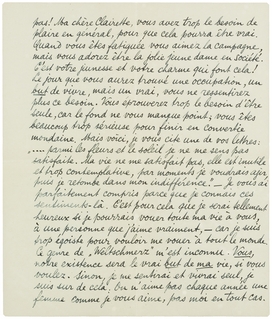 pas! Ma chère Clairette, vous avez trop le besoin de
plaire en général, pour que cela pourra être vrai.
Quand vous êtes fatiguée vous aimez la campagne,
mais vous adorez être la jolie jeune dame en société.
C'est votre jeunesse et votre charme qui font cela!
Le jour que vous aurez trouvé une occupation, un
but de vivre, mais un vrai, vous ne ressentirez
plus ce besoin. Vous éprouverez trop le besoin d'être
seule, car le fond ne vous manque point, vous êtes
beaucoup trop sérieuse pour finir en convertie
mondaine. Mais voici, je vous cite une de vos lettres:
.... parmi les fleurs et le soleil je ne me sens pas
satisfaite. Ma vie ne me satisfait pas, elle est inutile
et trop contemplative, par moments je voudrais agir
puis je retombe dans mon indifférence. — Je vous ai
parfaitement compris parce que je connais ces
sentiments-là. C'est pour cela que je serai tellement
heureux si je pourrais vouer toute ma vie à vous,
à une personne que j'aime vraiment, — car je suis
trop égoïste pour vouloir me vouer à tout le monde.
Le genre de "Weltschmerz" m'est inconnu. Vous,
notre existence sera le vrai but de ma vie, si vous
voulez. Sinon, je me sentirai et vivrai seul, je
suis sur de cela, on n'aime pas chaque année une
femme comme je vous aime, pas moi en tout cas.